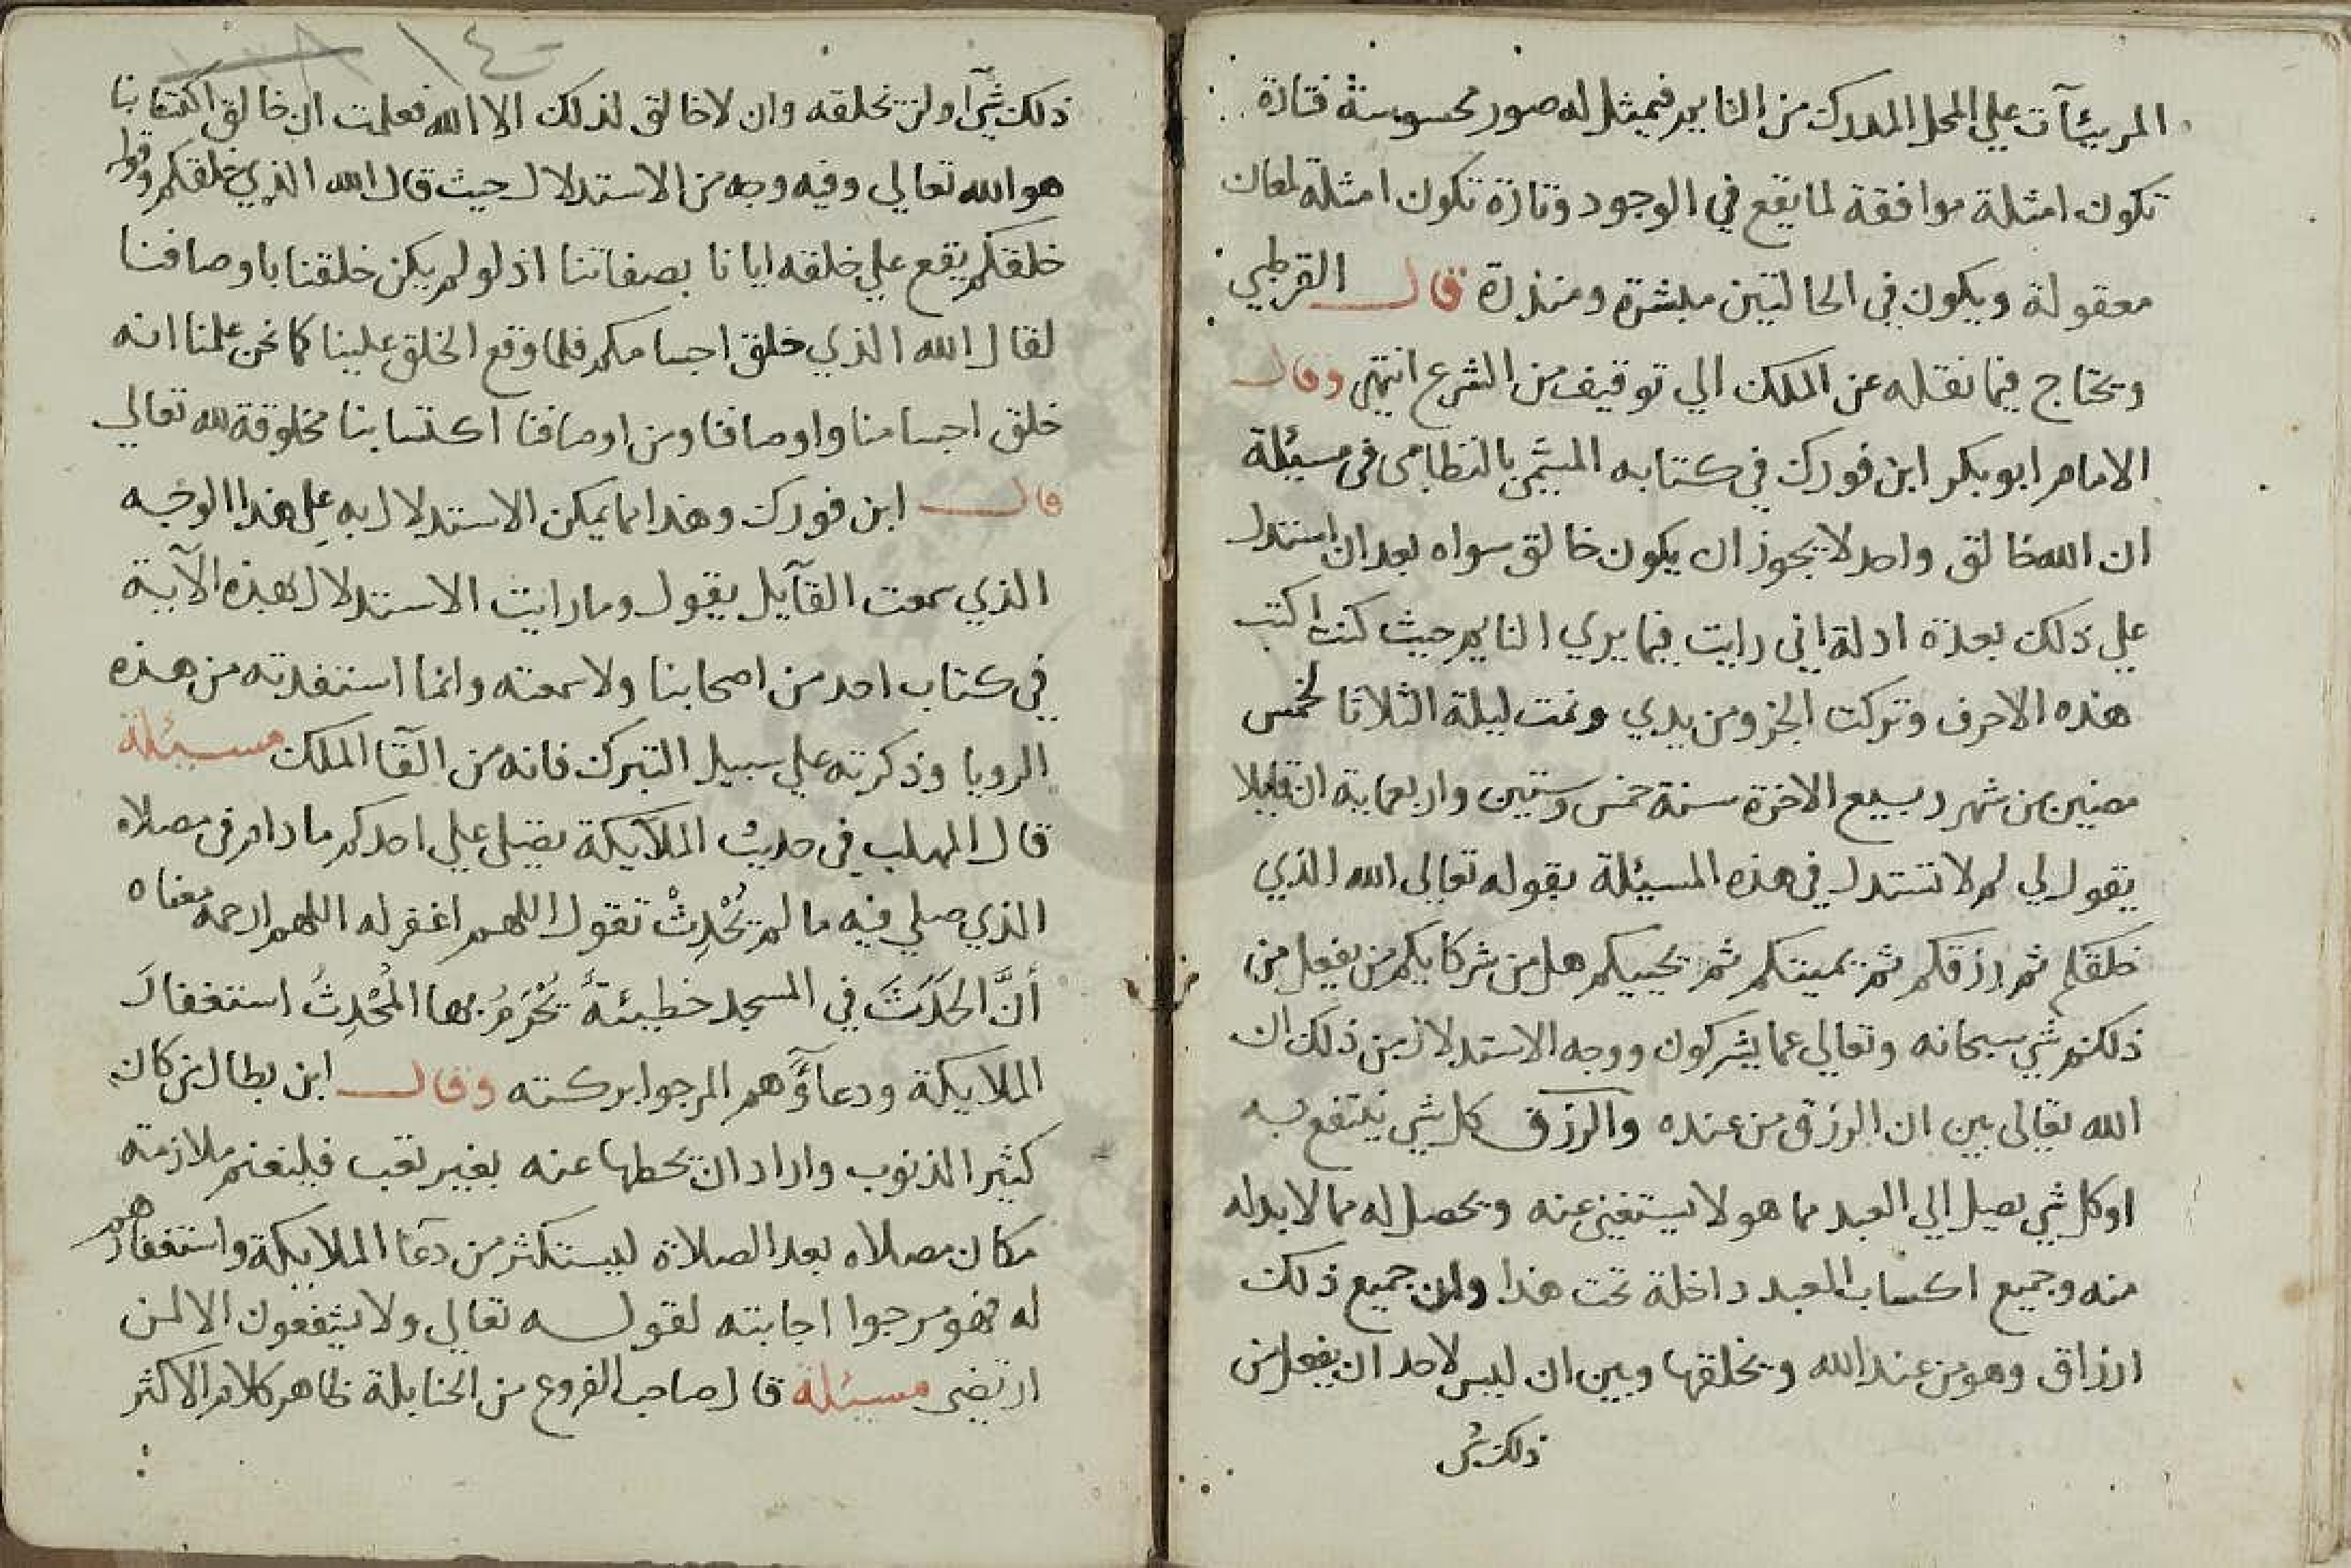 المريئآت علي المحل المدرك من النايم فيمثل له صور محسوسة فتارة
تكون امثلة موافقة لما يقع في الوجود وتارة تكون امثلة لمعان
معقولة ويكون في الحالتين مبشرة ومنذرة قال القرطبي
ويحتاج فيما نقله عن الملك الي توقيف من الشرع انتهي وقال
الامام ابو بكر ابن فورك في كتابه المسمي بالنظامى فى مسئلة
ان الله خالق واحد لا يجوز ان يكون خالق سواه بعد ان استدل
علي ذلك بعدة ادلة اني رايت فيما يري النايم حيث كنت اكتب
هذه الاحرف وتركت الجزو من يدي ونمت ليلة الثلاثا لخمس
مضين من شهر ربيع الاخرة سنة خمس وستين واربعماية ان قايلا
يقول لي لم لا تستدل في هذه المسئلة بقوله تعالى الله الذي
خلقكم ثم رزقكم ثم يميتكم ثم يحييكم هل من شركايكم من يفعل من
ذلكم من شي سبحانه وتعالي عما يشركون ووجه الاستدلال من ذلك ان
الله تعالى بين ان الرزق من عنده والرزق كل شي ينتفع به
او كل شي يصل الي العبد مما هو لا يستغني عنه ويحصل له مما لا بد له
منه وجميع اكساب العبد داخلة تحت هذا وان جميع ذلك
ارزاق وهو من عند الله ويخلقها وبين ان ليس لاحد ان يفعل من
ذلك شي
١٤٠
ذلك شئا ولن يخلقه وان لا خالق لذلك الا الله فعلمت ان خالق اكتسابنا
هو الله تعالي وفيه وجه من الاستدلال حيث قال الله الذي خلقكم وقوله
خلقكم يقع علي خلقه ايانا بصفاتنا اذ لو لم يكن خلقنا باوصافنا
لقال الله الذي خلق اجسامكم فلما وقع الخلق علينا كما نحن علمنا انه
خلق اجسامنا واوصافنا ومن اوصافنا اكتسابنا مخلوقة لله تعالي
قال ابن فورك وهذا مما يمكن الاستدلال به علي هذا الوجه
الذي سمعت القآيل يقول وما رايت الاستدلال بهذه الآية
في كتاب احد من اصحابنا ولا سمعته وانما استفدته من هذه
الرويا وذكرته علي سبيل التبرك فانه من القآ الملك مسئلة
قال المهلب في حديث الملآيكة يصلي علي احدكم ما دام فى مصلاه
الذي صلي فيه ما لم يُحْدِثْ تقول اللهم اغفر له اللهم ارحمه معناه
أنَّ الحَدَثَ في المسجد خطيئةٌ يُحْرَمُ بها المُحْدِثُ استغفار
الملايكة ودعاؤهم المرجوا بركته وقال ابن بطال من كان
كثير الذنوب واراد ان يحطها عنه بغير تعب فليغتنم ملازمة
مكان مصلاه بعد الصلاة ليستكثر من دعآ الملايكة واستغفارهم
له فهو مرجوا اجابته لقوله تعالي ولا يشفعون الا لمن
ارتضى مسئلة قال صاحب الفروع من الحنابلة ظاهر كلام الاكثر